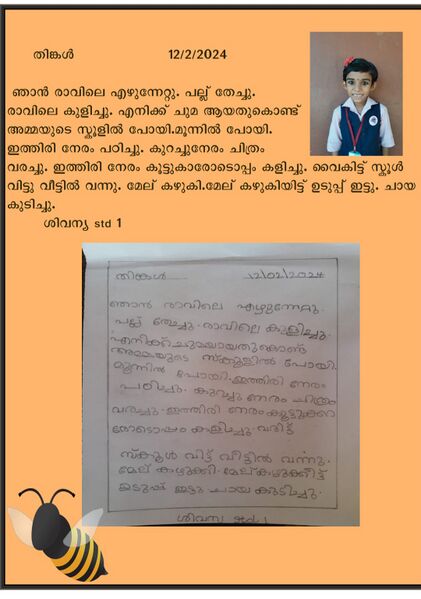 തിങ്കൾ 12/2/2024
ഞാൻ രാവിലെ എഴുന്നേറ്റു. പല്ല് തേച്ചു.
രാവിലെ കുളിച്ചു. എനിക്ക് ചുമ ആയതുകൊണ്ട്
അമ്മയുടെ സ്കൂളിൽ പോയി.മൂന്നിൽ പോയി.
ഇത്തിരി നേരം പഠിച്ചു. കുറച്ചുനേരം ചിത്രം
വരച്ചു. ഇത്തിരി നേരം കൂട്ടുകാരോടൊപ്പം കളിച്ചു. വൈകിട്ട് സ്കൂൾ
വിട്ടു വീട്ടിൽ വന്നു. മേല് കഴുകി.മേല് കഴുകിയിട്ട് ഉടുപ്പ് ഇട്ടു. ചായ
കുടിച്ചു.
ശിവന്യ std 1
തിങ്കൾ 12/02/2024
ഞാൻ രാവിലെ എഴുന്നേറ്റു.
പല്ല് തേച്ചു. രാവിലെ കുളിച്ചു.
എനിക്ക് ചുമയായതുകൊണ്ട്
അമ്മയുടെ സ്കൂളിൽ പോയി.
മൂന്നിൽ പോയി. ഇത്തിരി നേരം
പഠിച്ചു. കുറച്ചു നേരം ചിത്രം
വരച്ചു. ഇത്തിരി നേരം കൂട്ടുകാ
രോടൊപ്പം കളിച്ചു.
സ്കൂൾ വിട്ട് വീട്ടിൽ വന്നു.
മേല് കഴുകി. മേല് കഴുകീട്ട്
ഉടുപ്പ് ഇട്ടു ചായ കുടിച്ചു.
ശിവന്യ std 1